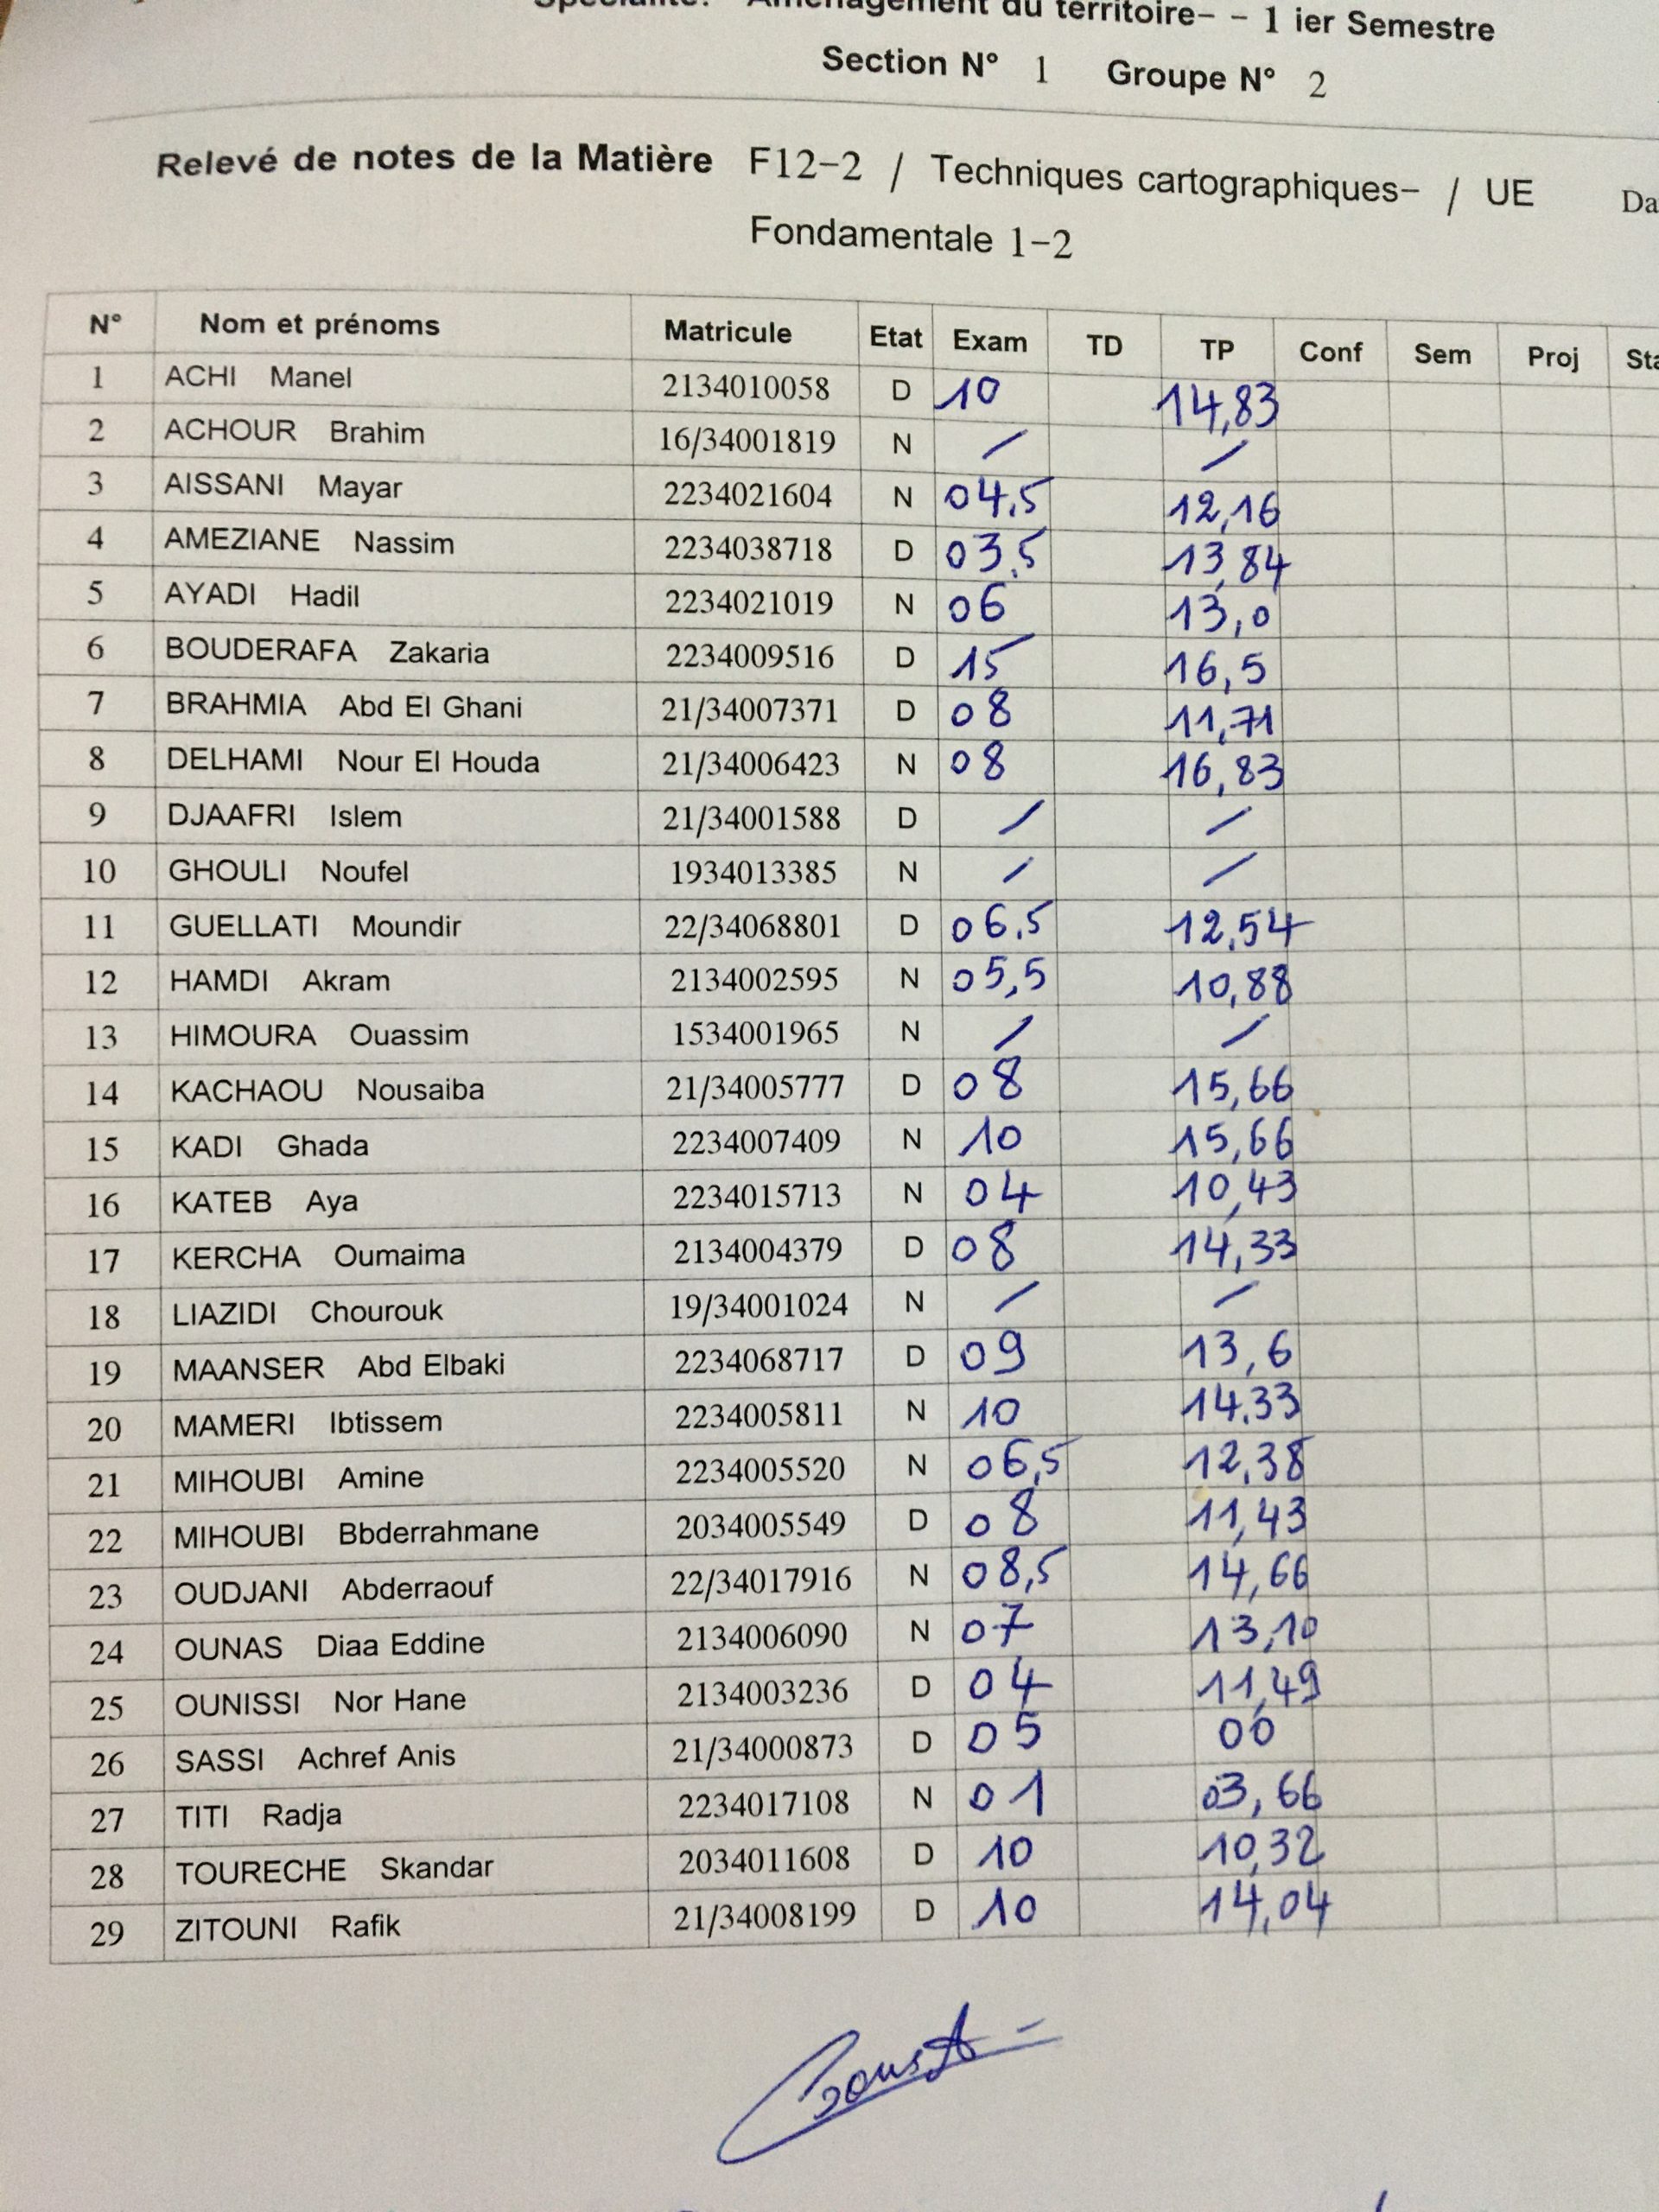 Spécialité: Aménagement du territoire- - 1 ier Semestre
Section N° 1 Groupe N° 2
Relevé de notes de la Matière F12-2 / Techniques cartographiques- / UE Da
Fondamentale 1-2
N° Nom et prénoms Matricule Etat Exam TD TP Conf Sem Proj Sta
1 ACHI Manel 2134010058 D 10 14,83
2 ACHOUR Brahim 16/34001819 N / /
3 AISSANI Mayar 2234021604 N 04,5 12,16
4 AMEZIANE Nassim 2234038718 D 03,5 13,84
5 AYADI Hadil 2234021019 N 06 13,0
6 BOUDERAFA Zakaria 2234009516 D 15 16,5
7 BRAHMIA Abd El Ghani 21/34007371 D 08 11,71
8 DELHAMI Nour El Houda 21/34006423 N 08 16,83
9 DJAAFRI Islem 21/34001588 D / /
10 GHOULI Noufel 1934013385 N / /
11 GUELLATI Moundir 22/34068801 D 06,5 12,54
12 HAMDI Akram 2134002595 N 05,5 10,88
13 HIMOURA Ouassim 1534001965 N / /
14 KACHAOU Nousaiba 21/34005777 D 08 15,66
15 KADI Ghada 2234007409 N 10 15,66
16 KATEB Aya 2234015713 N 04 10,43
17 KERCHA Oumaima 2134004379 D 08 14,33
18 LIAZIDI Chourouk 19/34001024 N / /
19 MAANSER Abd Elbaki 2234068717 D 09 13,6
20 MAMERI Ibtissem 2234005811 N 10 14.33
21 MIHOUBI Amine 2234005520 N 06,5 12,38
22 MIHOUBI Bbderrahmane 2034005549 D 08 11,43
23 OUDJANI Abderraouf 22/34017916 N 08,5 14,66
24 OUNAS Diaa Eddine 2134006090 N 07 13,10
25 OUNISSI Nor Hane 2134003236 D 04 11,49
26 SASSI Achref Anis 21/34000873 D 05 00
27 TITI Radja 2234017108 N 01 03,66
28 TOURECHE Skandar 2034011608 D 10 10,32
29 ZITOUNI Rafik 21/34008199 D 10 14,04